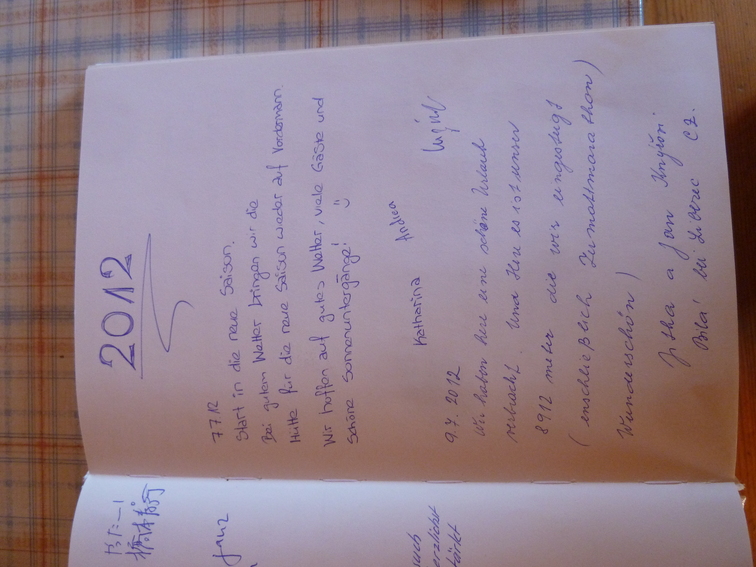 2012
7.7.12
Start in die neue Saison.
Bei gutem Wetter bringen wir die
Hütte für die neue Saison wieder auf Vordermann.
Wir hoffen auf gutes Wetter, viele Gäste und
schöne Sonnenuntergänge!
Katharina Andrea
9.7.2012
Wir haben here eine schöne Urlaub
verbracht. Und Here es ist unser
8912 meter die wir eingestiegt
(enschließlich Zermattmarathon)
Wunderschön)
Jitka a Jan
Bílá bei Liberec CZ.
ganz